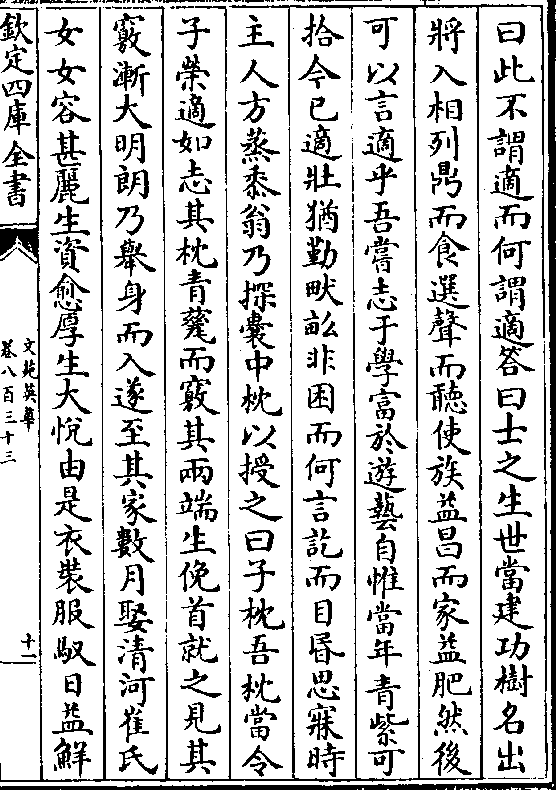 曰此不謂適而何謂適答曰士之生世當建功樹名出
將入相列鼎而食選聲而聽使族益昌而家益肥然後
可以言適乎吾嘗志于學富於遊藝自惟當年青紫可
拾今已適壯猶勤畎畝非困而何言訖而目昏思寐時
主人方蒸黍翁乃探囊中枕以授之曰子枕吾枕當令
子榮適如志其枕青甆而竅其兩端生俛首就之見其
竅漸大明朗乃舉身而入遂至其家數月娶清河崔氏
女女容甚麗生資愈厚生大悅由是衣裝服馭日益鮮
欽定四庫全書
文苑英華
卷八百三十三
十一